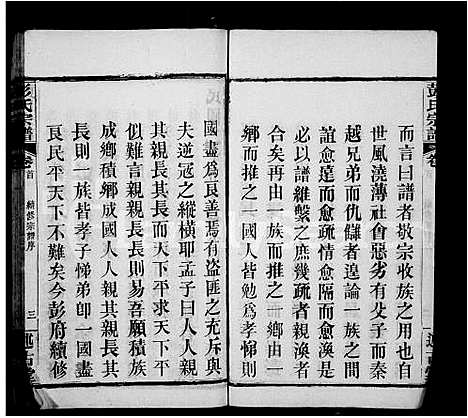 彭氏宗譜
卷首
而言曰譜者敬宗收族之用也
世風澆薄社會惡劣有父子而秦
越兄弟而仇讎者遑論
誼愈遠而愈疏情愈隔而愈渙是
必以譜維繫之庶幾疏者親渙者
合矣再由一族而推之一鄉由一
鄉而推之一國人皆勉爲孝悌則
國盡爲良善焉有盜匪之充斥與
夫逆寇之縱橫耶孟子曰人人親
其親長其長而天下平求天下平
似難言親親長長則易善願積族
成鄉積鄉成國人人親其親長其
長則一族皆孝子悌弟卽一國盡
良民平天下不難矣今彭府續修
彭氏宗譜
卷首
續修宗譜序
三